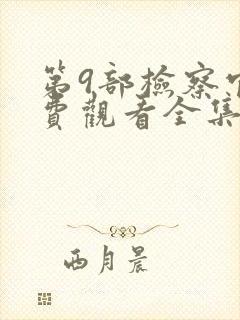 第9部檢察
費觀看全集
西月晨